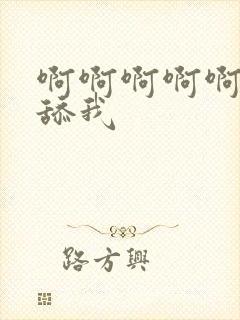 啊啊啊啊啊
舔我
路方興